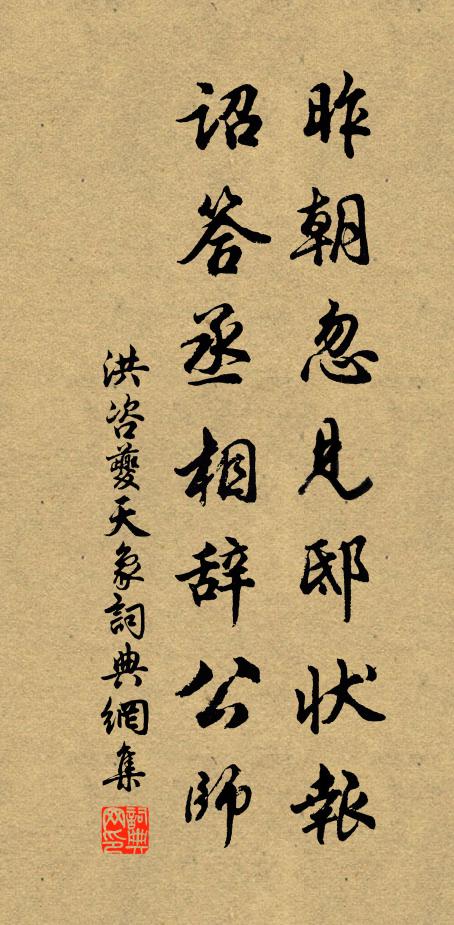 昨朝忽見邸状報
詔答丞相辞公師
洪咨夔天象詞典網集
詞典网印